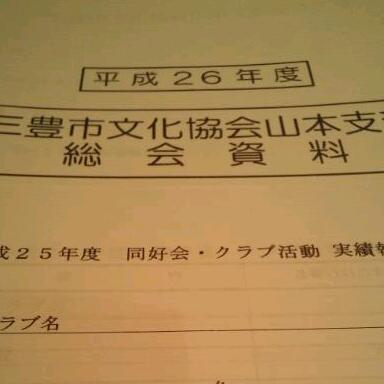 平成26年度
三豊市文化協会山本支
総会資料
成25年度 同好会・クラブ活動 実績
ラブ名